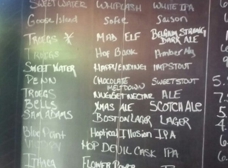 SWEET WATER WHITECATH WHITE IPA
Goose Island Sofie Saison
TROEGS MAD ELF BELGIAN STRONG DARK ALE
TROEGS HOP BACK AMBER ALE
SWEET WATER HAPPY ENDING IMP STOUT
PENN CHOCOLATE MELTDOWN SWEET STOUT
TROEGS NUGGET NECTAR ALE
BELLS XMAS ALE SCOTCH ALE
SAM ADAMS BOSTON LAGER LAGER
Blue Point Hoptical Illusion IPA
HOP DEVIL CASK IPA
ITHACA FLOWER POWER